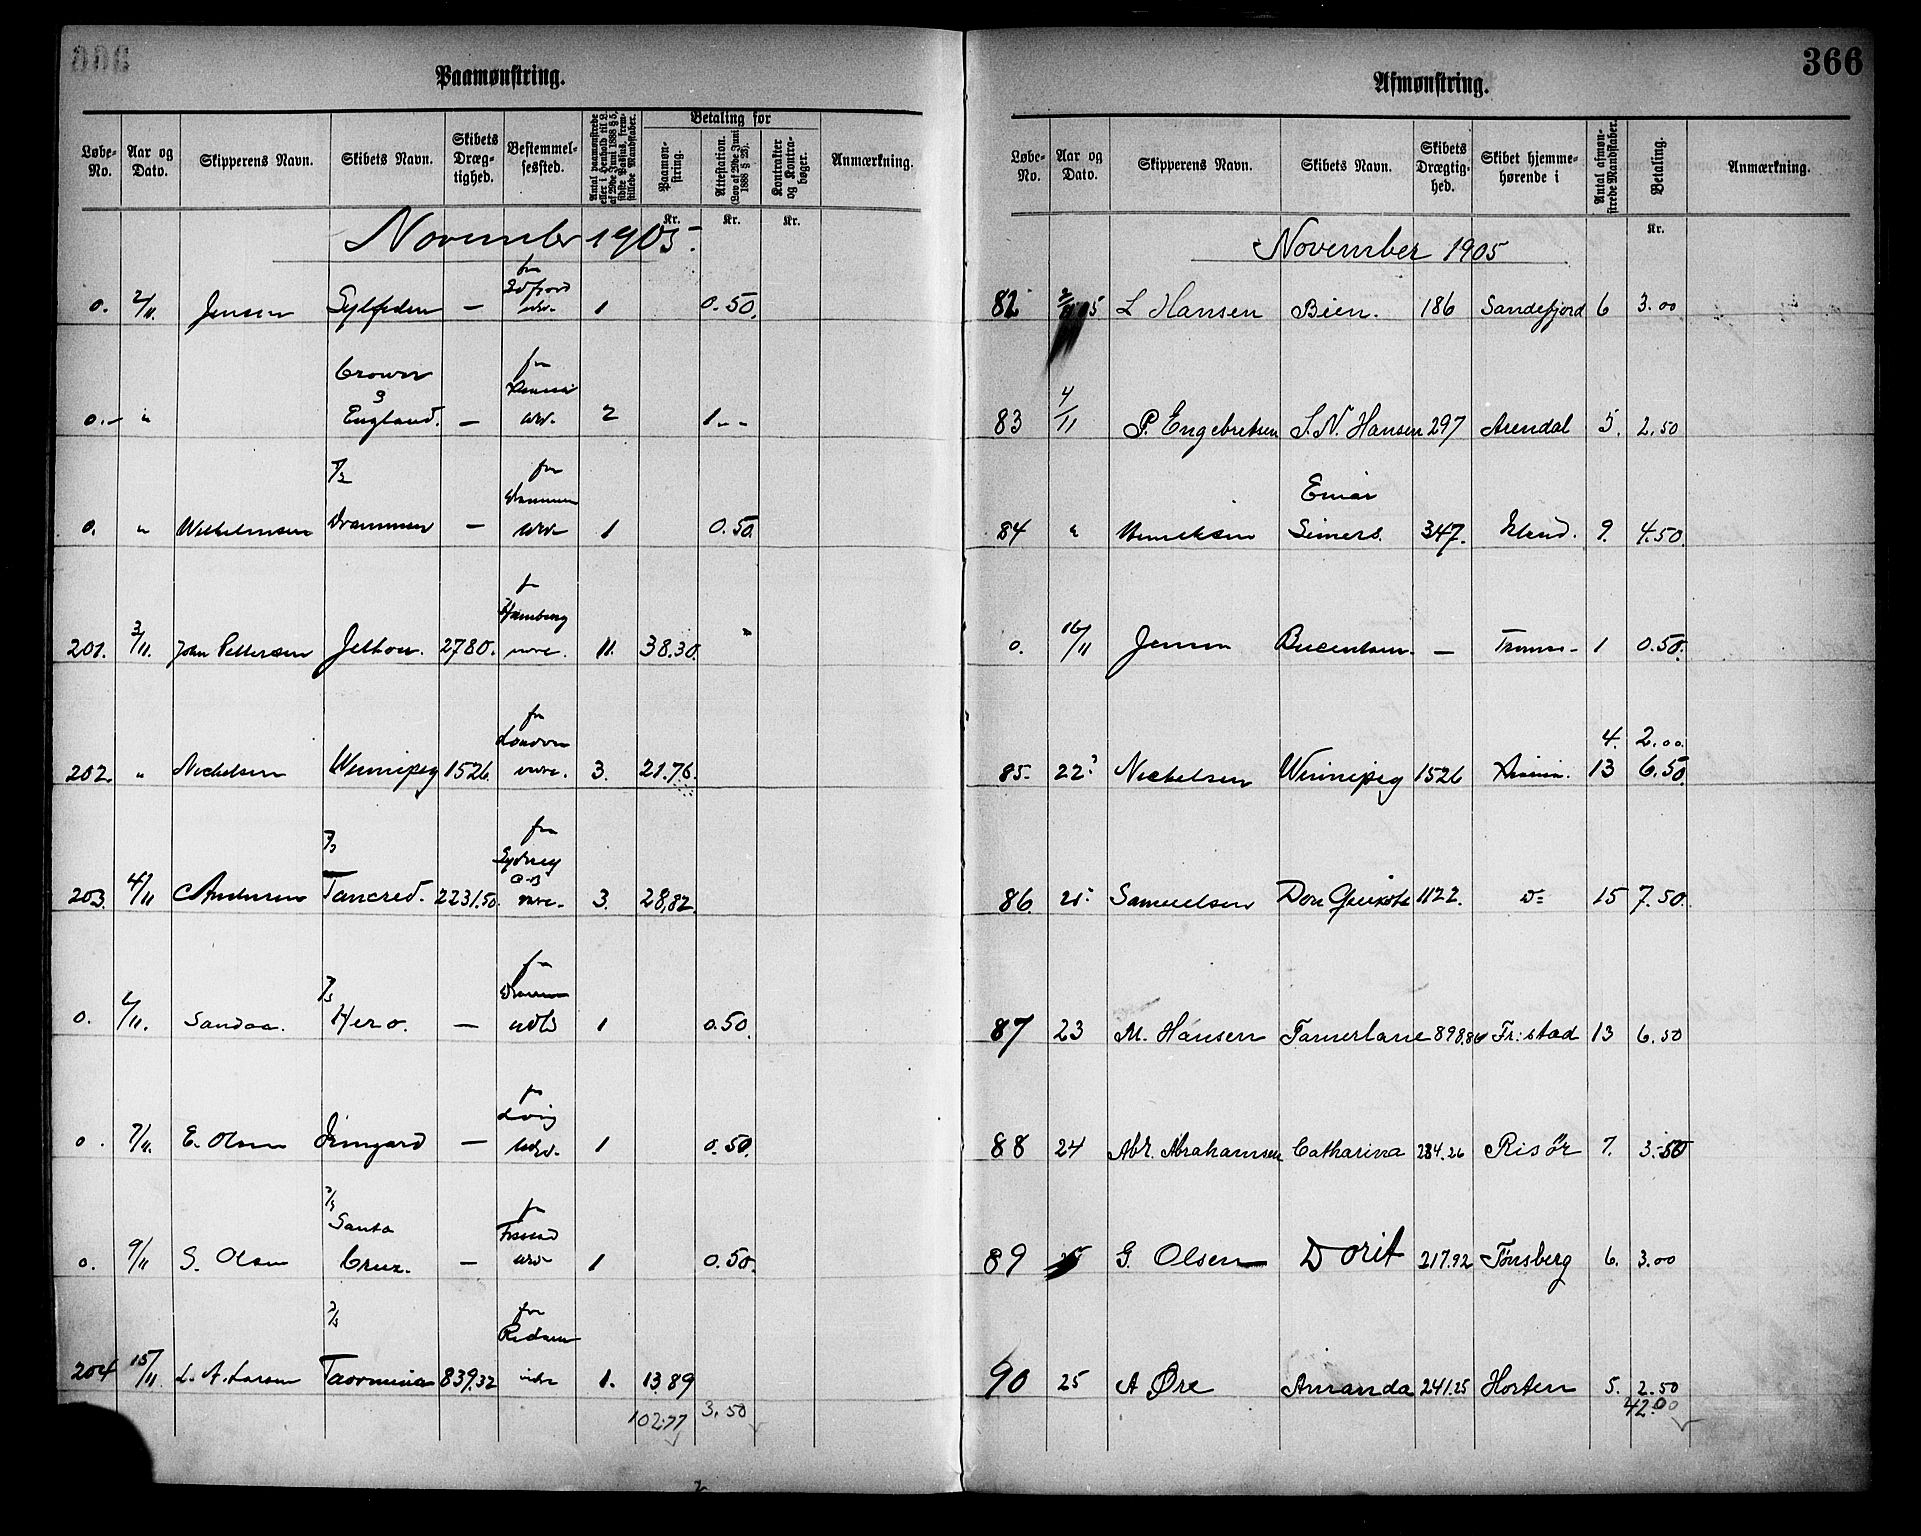 Paamønstring.
Løbe-No.
Aar og Dato.
Skipperens Navn.
Skibets Navn.
Skibets Dræg-tighed.
Bestemmel-sessted.
Antal paamønstrede eller i Henhold til L. af 29de Juni 1888 § 5, sidste Passus, frem-stillede Mandskaber.
Betaling for
Paamøn-string.
Attestation. (Lov af 29de Juni 1888 § 23).
Kontrakter og Kontra-bøger.
Anmærkning.
Kr. Kr. Kr.
November 1905.
fra
0. 2/11. Jensen Sylfiden — 1 0.50.
Crown
fra
0.- " England. — 2 1.--
fra
0. " Wilhelmsen Drammen — 1 0.50.
Hamburg
201. 3/11. John Pettersen 2780. 11. 38.30.
fra
London
202. " Nickelsen Winnipeg 1526. 3. 21.76.
fra
Sydney
203. 4/11 Andersen Tancred. 2231.50. 3. 28,82.
fra
0. 6/11. Sandaa. Hero. — 1 0.50.
0. 7/11. E. Olsen Irmgard — 1 0.50.
Santa
0. 9/11 S. Olsen Cruz. — 1 0.50.
fra
204 15/11. L. A. Larsen Taormina 839.32 1. 13.89
102.77 3.50
366
Afmønstring.
Løbe-No.
Aar og Dato.
Skipperens Navn.
Skibets Navn.
Skibets Drægtig-hed.
Skibet hjemme-hørende i
Antal afmøn-strede Mandskaber.
Betaling.
Anmærkning.
Kr.
November 1905
82 L Hansen Bien. 186 Sandefjord 6 3.00
83 4/11 P. Engebretsen S. N. Hansen 297 Arendal 5. 2.50
Einar
84 " Henriksen 347. 9. 4.50.
0. 16/11 Jensen — 1 0.50.
4. 2.00.
85. 22 Nickelsen Winnipeg 1526 13 6.50
86. Samuelsen Don Quixote 1122. 15 7.50.
87 23 M. Hansen Tamerlane 898.86 Fr:stad 13 6.50
88 24 Abr. Abrahamsen Catharina 284.26 Risör 7. 3.50
89 G. Olsen Dorit 217.92 Tönsberg 6. 3.00
90 25 A Øre Amanda 241.25 Horten 5. 2.50
42.00